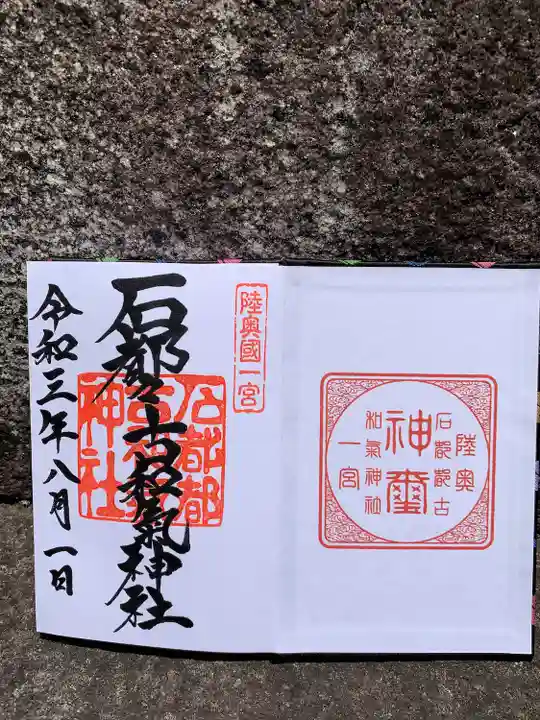 陸奥
石都都古
神璽
和氣神社
一宮
陸奥國一宮
石都々古和氣神社
石都都
神社
令和三年八月一日